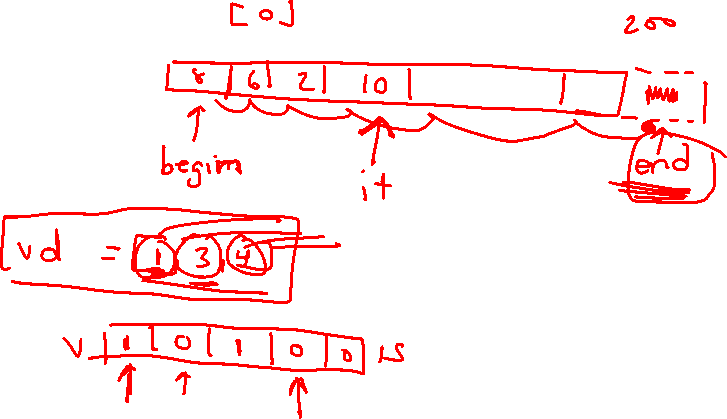 [0]
200
8 6 2 10
begin it end
vd = 1 3 4
V 1 0 1 0 0 15